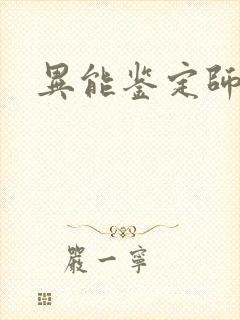 異能鉴定師
嚴一寧